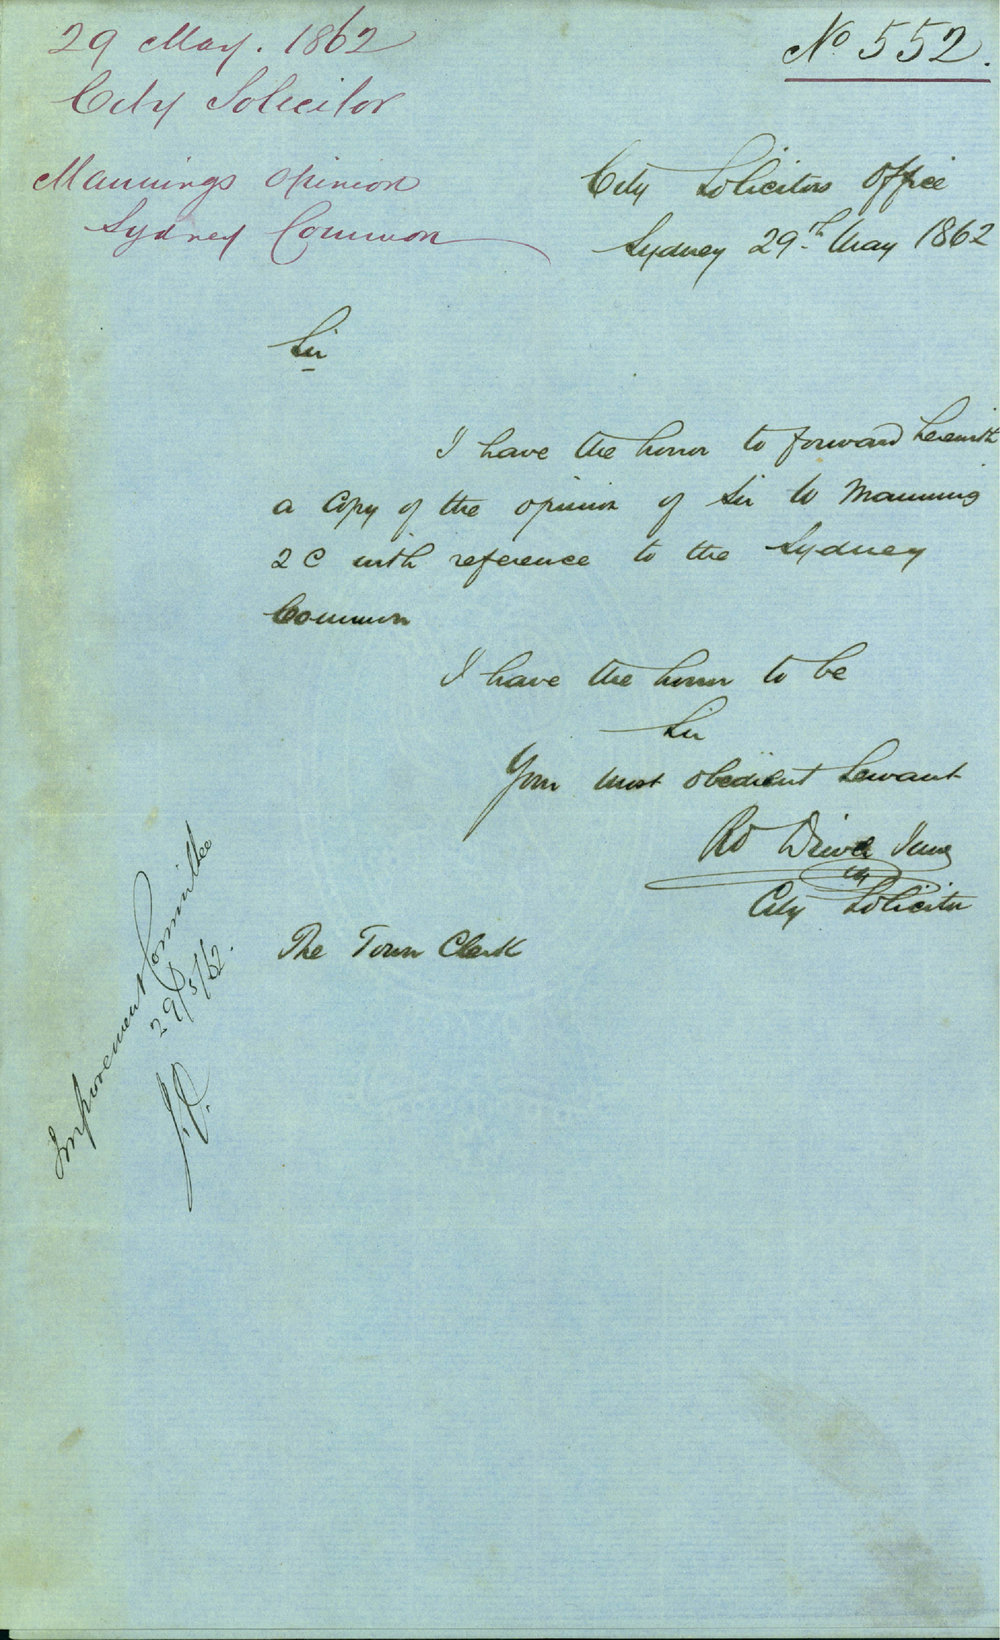 29 May. 1862
City Solicitor
Mannings opinion
Sydney Common
No 552.
City Solicitors Office
Sydney 29th May 1862
Sir
I have the honor to forward herewith
a Copy of the opinion of Sir W Manning
Q C with reference to the Sydney
Common
I have the honor to be
Sir
Your most obedient Servant
Rd Driver Junr
City Solicitor
The Town Clerk
Improvement Committee
29/5/62.